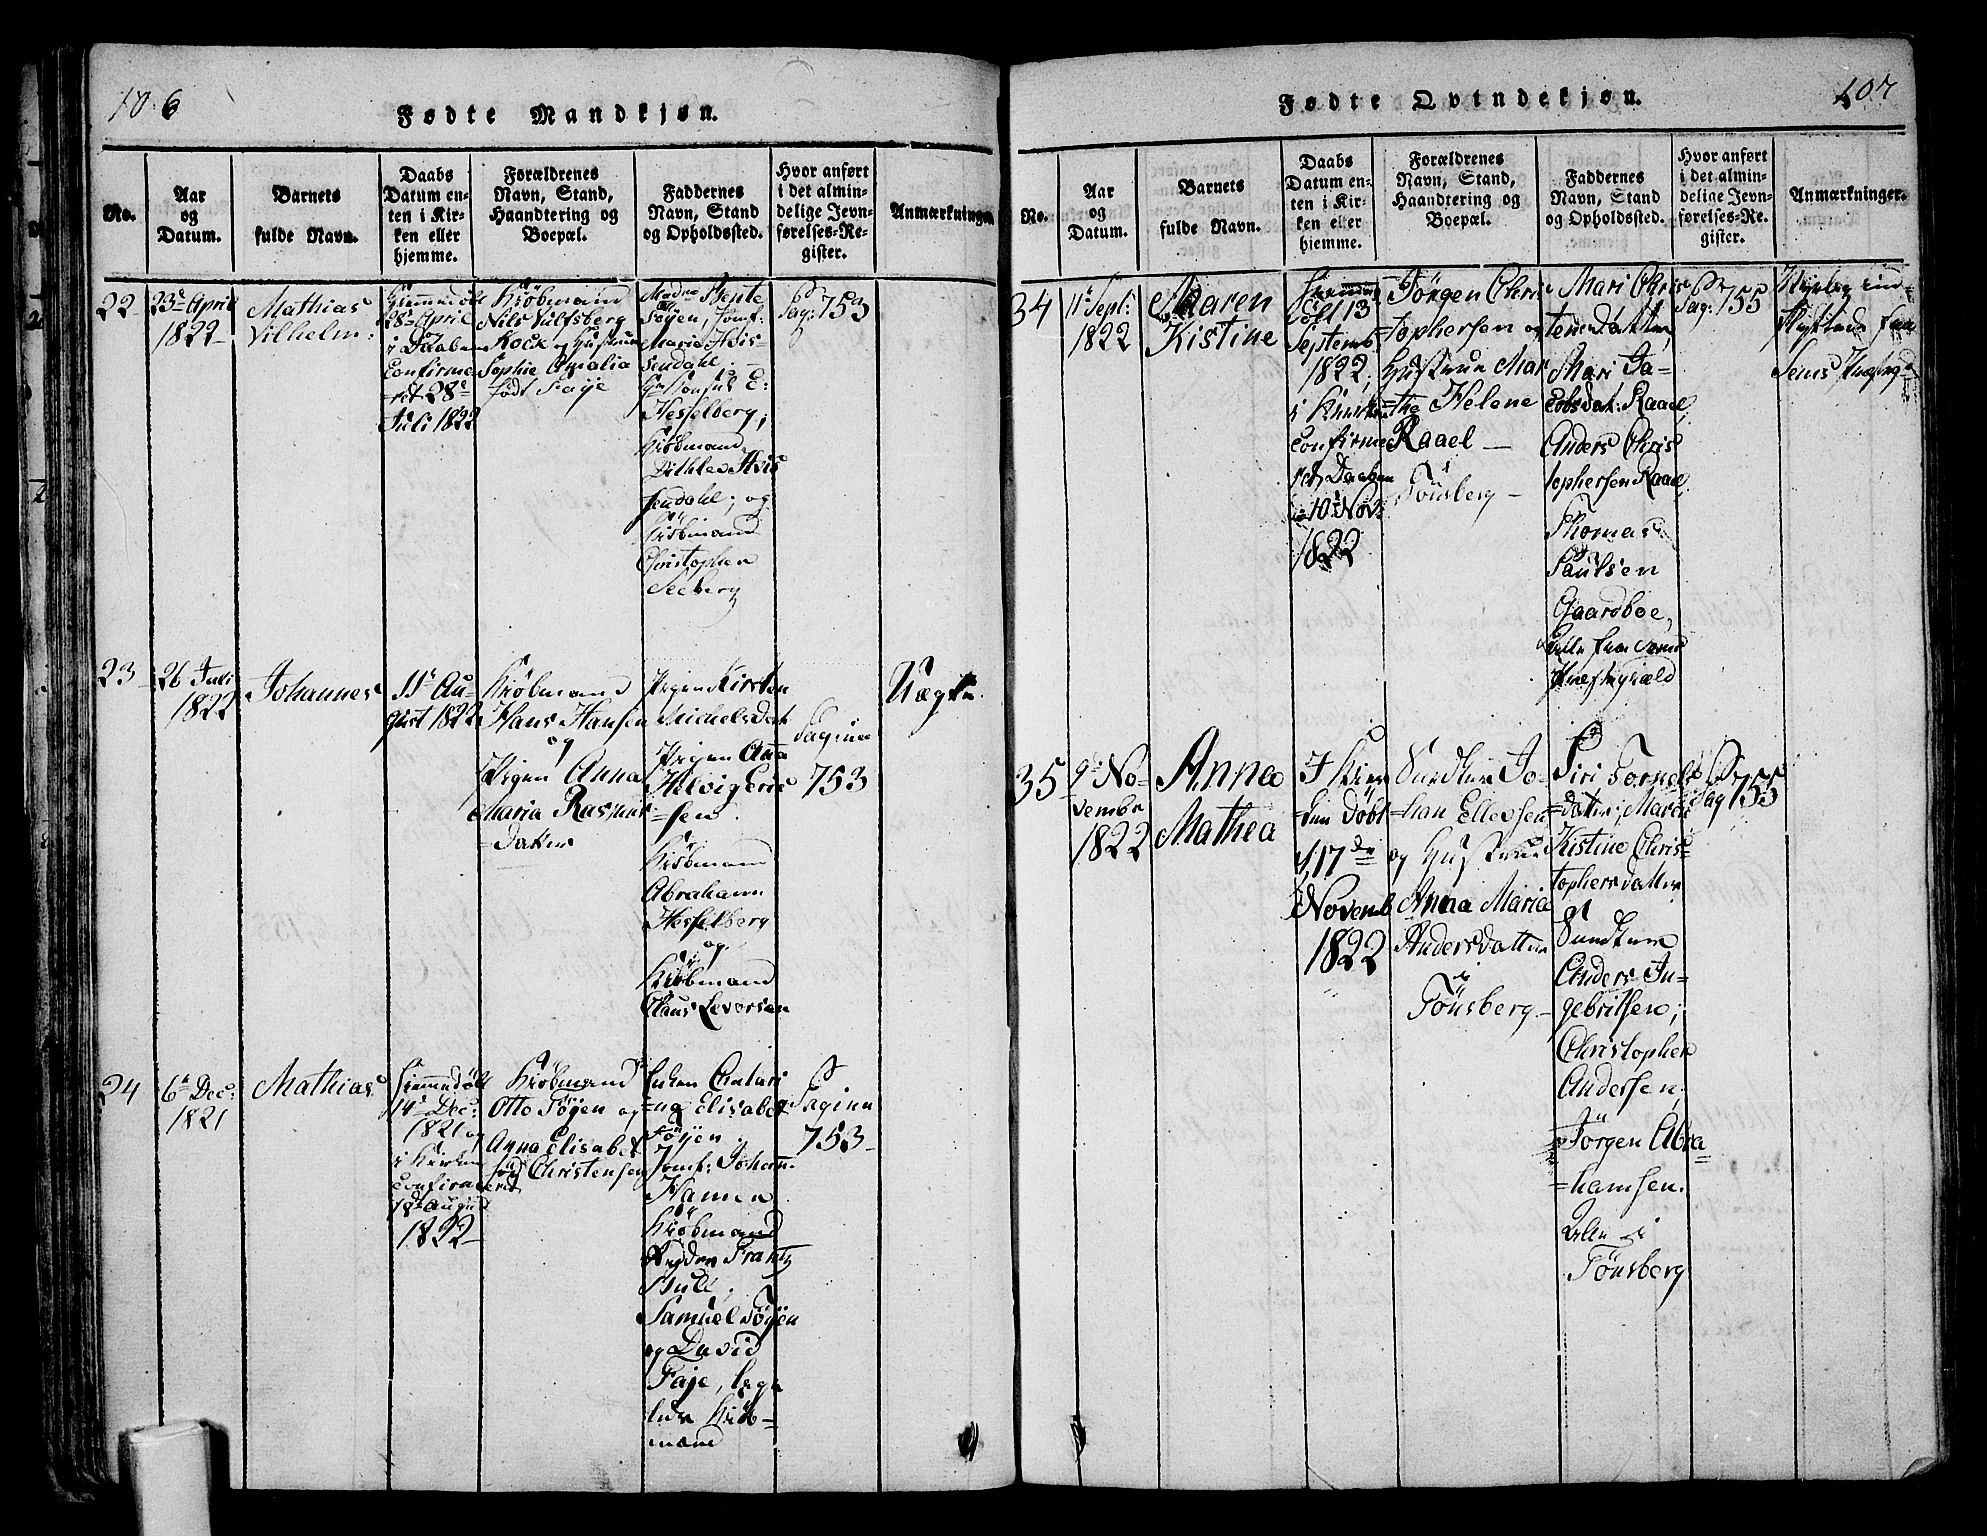 106
Fødte Mandkjøn.
No.
Aar
og
Datum.
Barnets
fulde Navn.
Daabs
Datum en-
ten i Kir-
ken eller
hjemme.
Forældrenes
Navn, Stand,
Haandtering og
Boepæl.
Faddernes
Navn, Stand
og Opholdssted.
Hvor anført
i det almin-
delige Jevn-
førelses-Re-
gister.
Anmærkninger
22
23de April
1822
Mathias
Vilhelm.
Hiemmedøbt
28de April
i Daaben
Confirme
-ret 28de
Juli 1822
Kiøbmand
Nils Vulfsberg
Kock og Hustrue
Sophie Amalia
født Faye
Madme Bepte
Føyen, Jomf:
Maria Hvis
sendahl
Consul E:
Hesselberg;
Kiøbmand
Dithlev Hvis
sendahl; og
Kiøbmand
Christopher
Seeberg
Pag: 753
23
26 Juli
1822
Johannes
11te Au-
gust 1822
Kiøbmand
Hans Hansen
og
Pigen Anna
Maria Rasmus
=datter
Pigen Kirsten
Michelsdat
Pigen Anna
Helvig Eric
=sen
Kiøbmand
Abraham
Hesselberg
og
Kiøbmand
Claus Levorsen
Pagina
753
Uægte
24
6te Dec:
1821
Mathias
Hiemmedøbt
14de Dec:
1821 og
i Kirken
Confirme
ret
18de August
1822
Kiøbmand
Otto Føyen og
Anna Elisabet
fød Christensen
Enken Chatari
=na Elisabet
Føyen
Jomf: Johan
Hannen
Kiøbmand
Peder Frantz
Bull,
Samuel Føyen
og David
Faje, lege
ledes Kiøb-
mænd
Pagina
753
107
Fødte Qvindekjøn.
No.
Aar
og
Datum.
Barnets
fulde Navn.
Daabs
Datum en-
ten i Kir-
ken eller
hjemme.
Forældrenes
Navn, Stand,
Haandtering og
Boepæl.
Faddernes
Navn, Stand
og Opholdssted.
Hvor anført
i det almin-
delige Jevn-
førelses-Re-
gister.
Anmærkninger.
34
11te Sept:
1822
Maren
Kistine
Hiemme
døbt 13
Septemb
1822,
i Kirken
Confirme
ret Daaben
10de Nov:
1822
Jörgen Chris
=tophersen og
Hustrue Mar
the Helene
Raael
Tönsberg
Mari Chris
tensdatter,
Mari Ja-
cobsdat: Raael
Anders Chris
tophersen Raael
Thomas
Paulsen
Gaardboe,
alle fra Sems
Præstegiæld
Pag: 755
Nyelig ind-
flyttede fra
Sems Præstegd
35
9de No-
vembr
1822
Anna
Mathea
I Kier
=ken døbt
d. 17de
Novemb
1822
Jo-
han Ellevsen
og Hustrue
Anna Maria
Andersdatter
i
Tönsberg
Siri Tornes
=datter; Maren
Kistine Chris
tophersdatter
og
Anders In-
gebritsen;
Christopher
Andersen,
Jörgen Abra
=hamsen.
alle i
Tönsberg
Pag 755